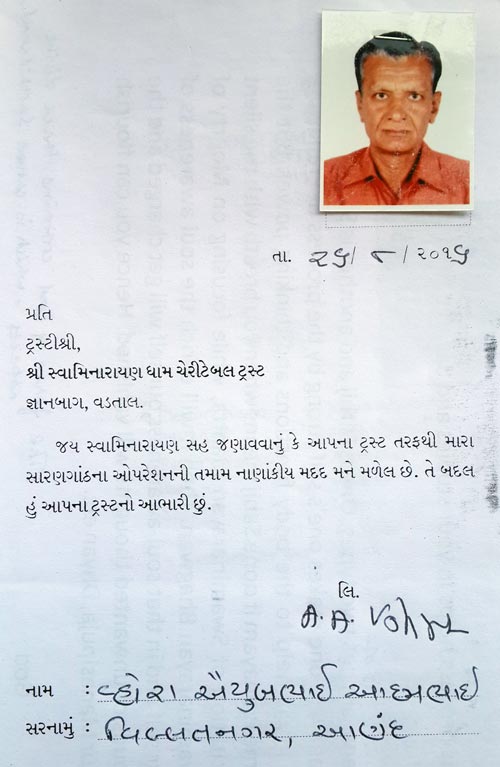 તા. ૨૬/ ૮ /૨૦૧૬
પ્રતિ
ટ્રસ્ટીશ્રી,
શ્રી સ્વામિનારાયણ ધામ ચેરીટેબલ ટ્રસ્ટ
જ્ઞાનબાગ, વડતાલ.
જય સ્વામિનારાયણ સહ જણાવવાનું કે આપના ટ્રસ્ટ તરફથી મારા
સારણગાંઠના ઓપરેશનની તમામ નાણાંકીય મદદ મને મળેલ છે. તે બદલ
હું આપના ટ્રસ્ટનો આભારી છું.
લિ.
A. A. Vohra
નામ : વ્હોરા ઐયુબભાઈ આદમભાઈ
સરનામું : મિલ્લતનગર, આણંદ